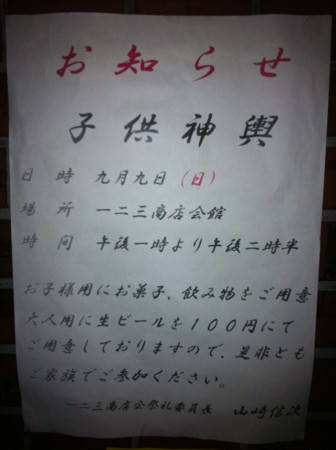 お知らせ
子供神輿
日時 九月九日(日)
場所 一二三商店会館
時间 午後一時より午後二時半
お子様用にお菓子、飲み物をご用意
大人用に生ビールを100円にて
ご用意しておりますので、是非とも
ご家族でご参加ください。
一二三商店会祭礼委員長 山崎信次